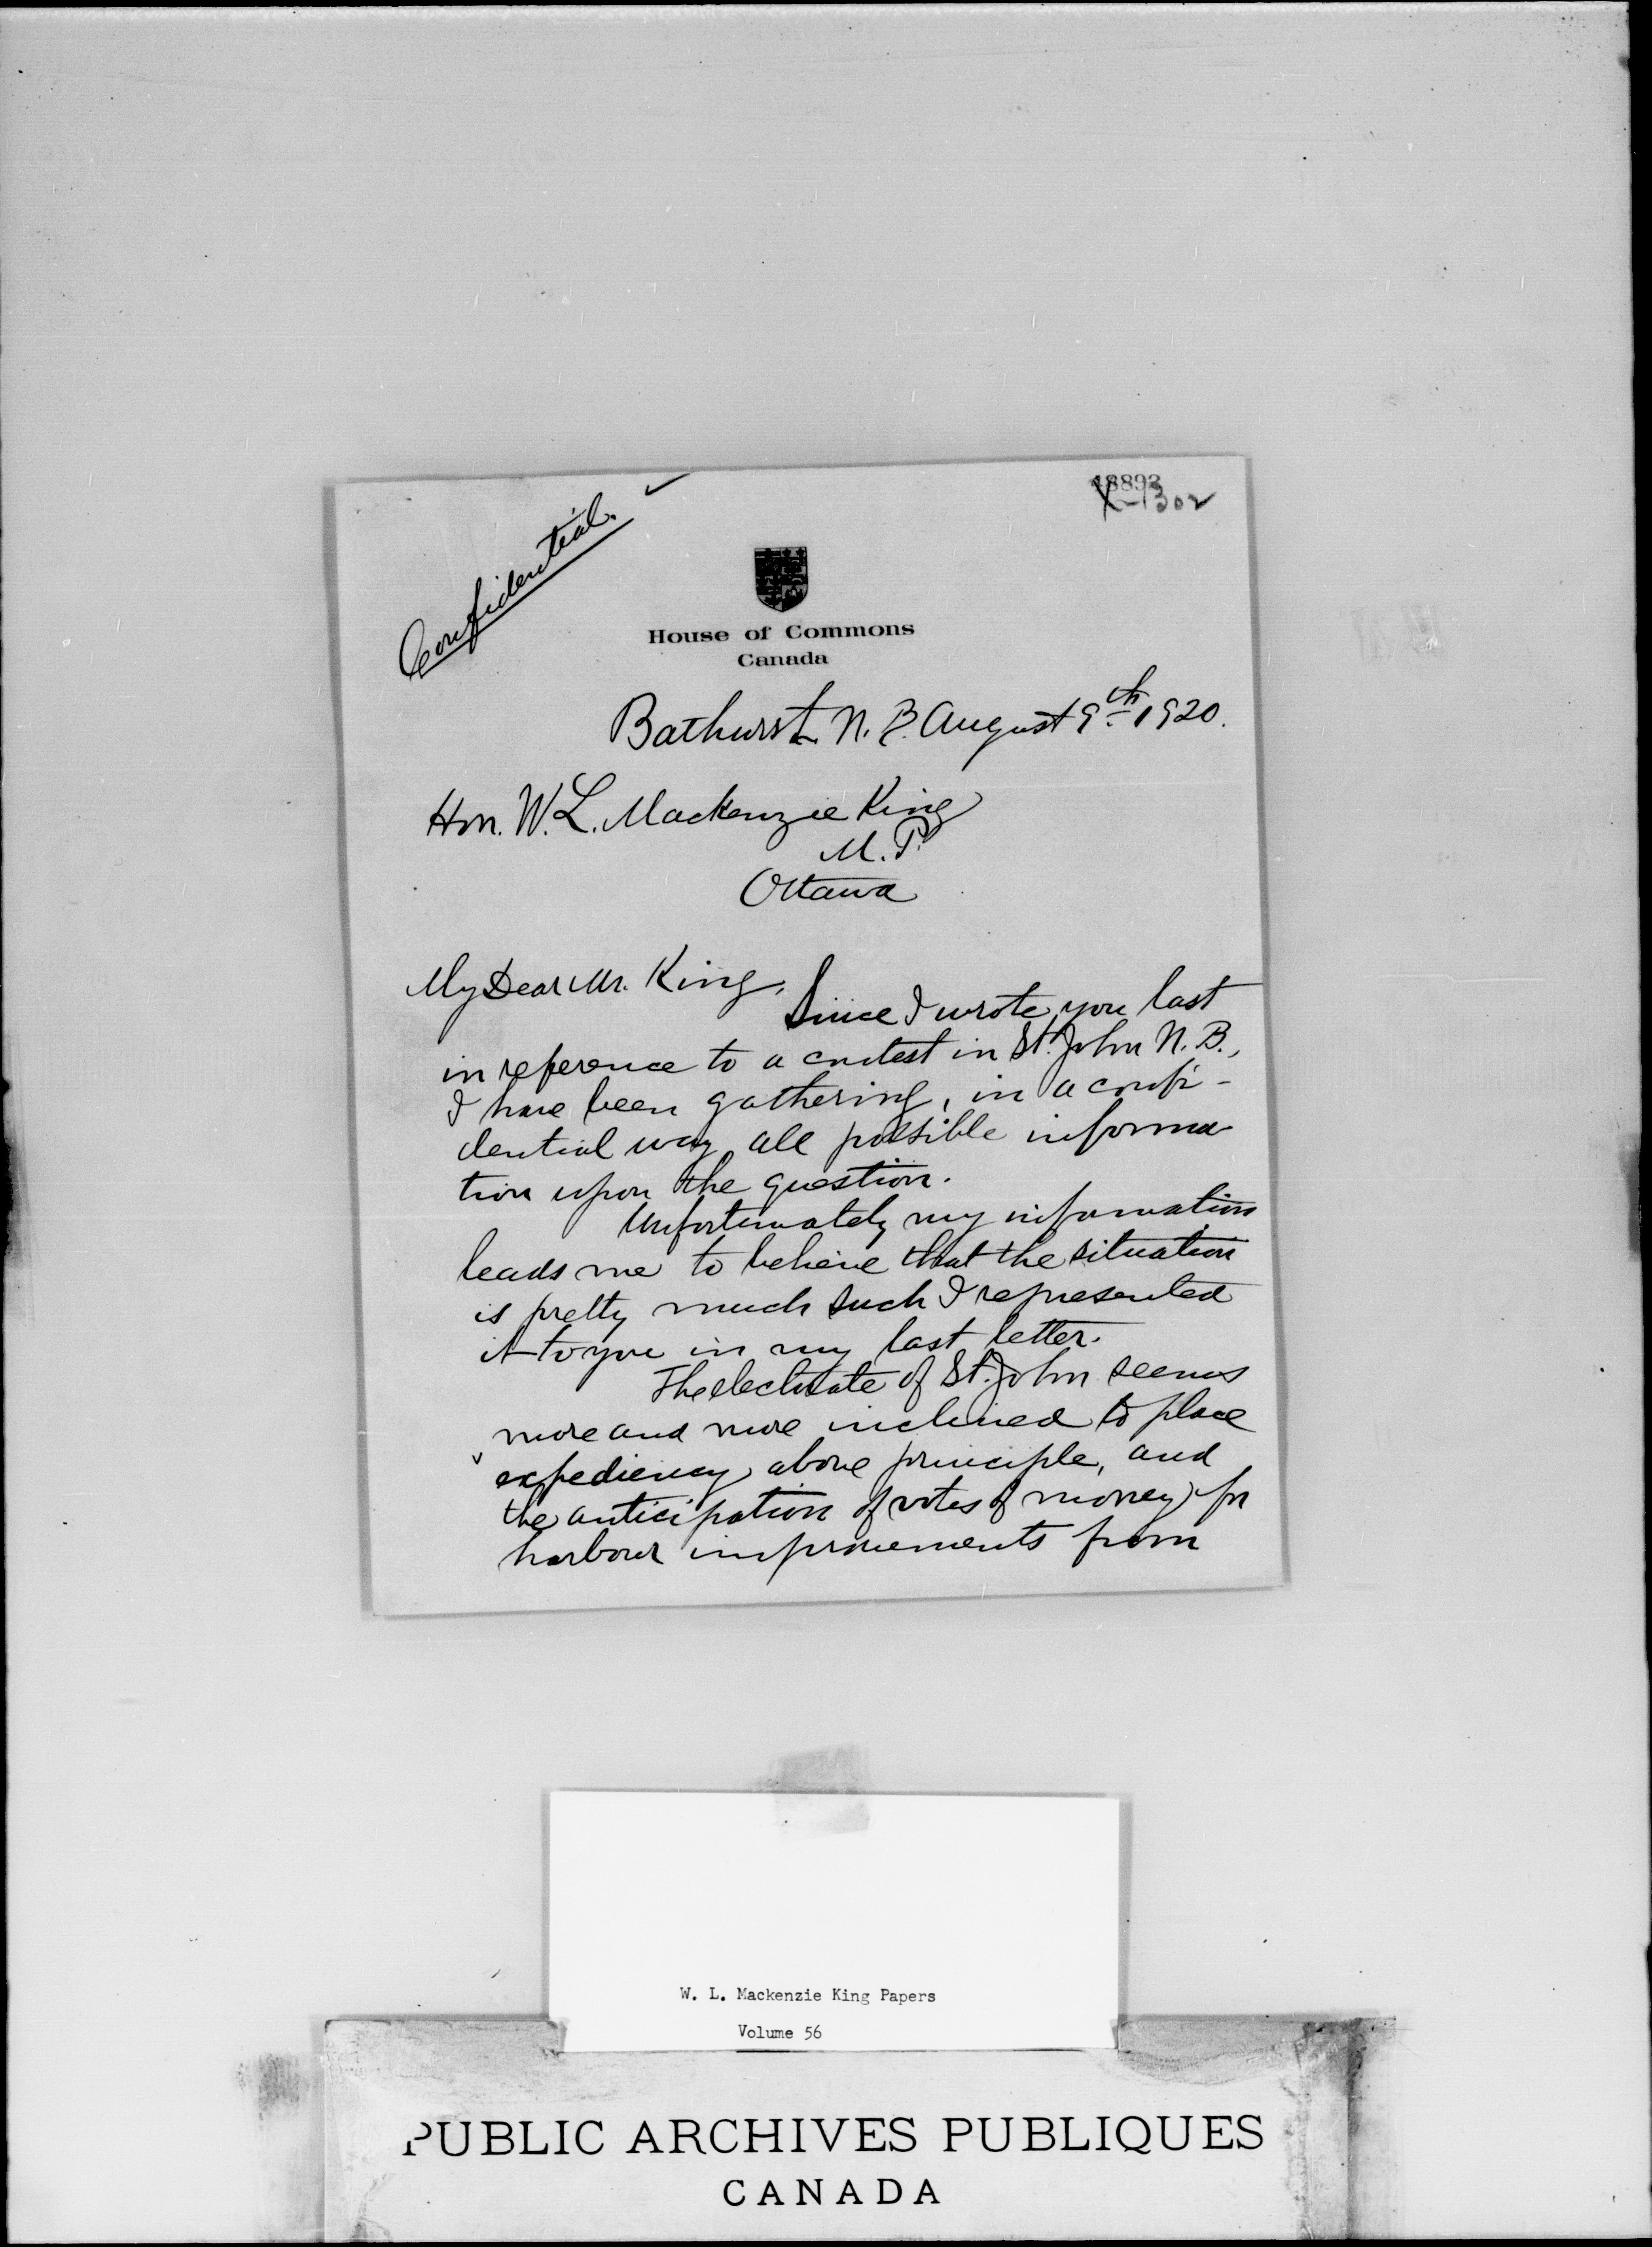 Confidential.
48892
X-1302
House of Commons
Canada
Bathurst N. B. August 9th 1920.
Hon. W. L. Mackenzie King
M. P.
Ottawa
My Dear Mr. King,
Since I wrote you last
in reference to a contest in St. John N. B.,
I have been gathering, in a confi-
dential way all possible informa
tion upon the question.
Unfortunately my information
leads me to believe that the situation
is pretty much such I represented
it to you in my last letter.
The electorate of St. John seems
more and more inclined to place
expediency above principle, and
the anticipation of votes of money for
harbour improvements from
W. L. Mackenzie King Papers
Volume 56
PUBLIC ARCHIVES PUBLIQUES
CANADA